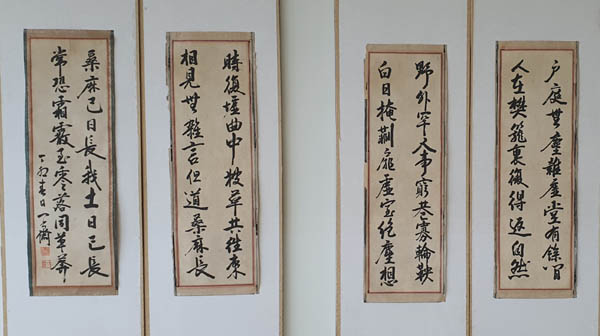 户庭無塵雜虚堂有餘閒
久在樊籠裏復得返自然
野外罕人事窮巷寡輪鞅
白日掩荆扉虚室絶塵想
時復墟曲中披草共往來
相見無雜言但道桑麻長
桑麻已日長我土日已長
常恐霜霰至零落同草莽
丁卯春日一